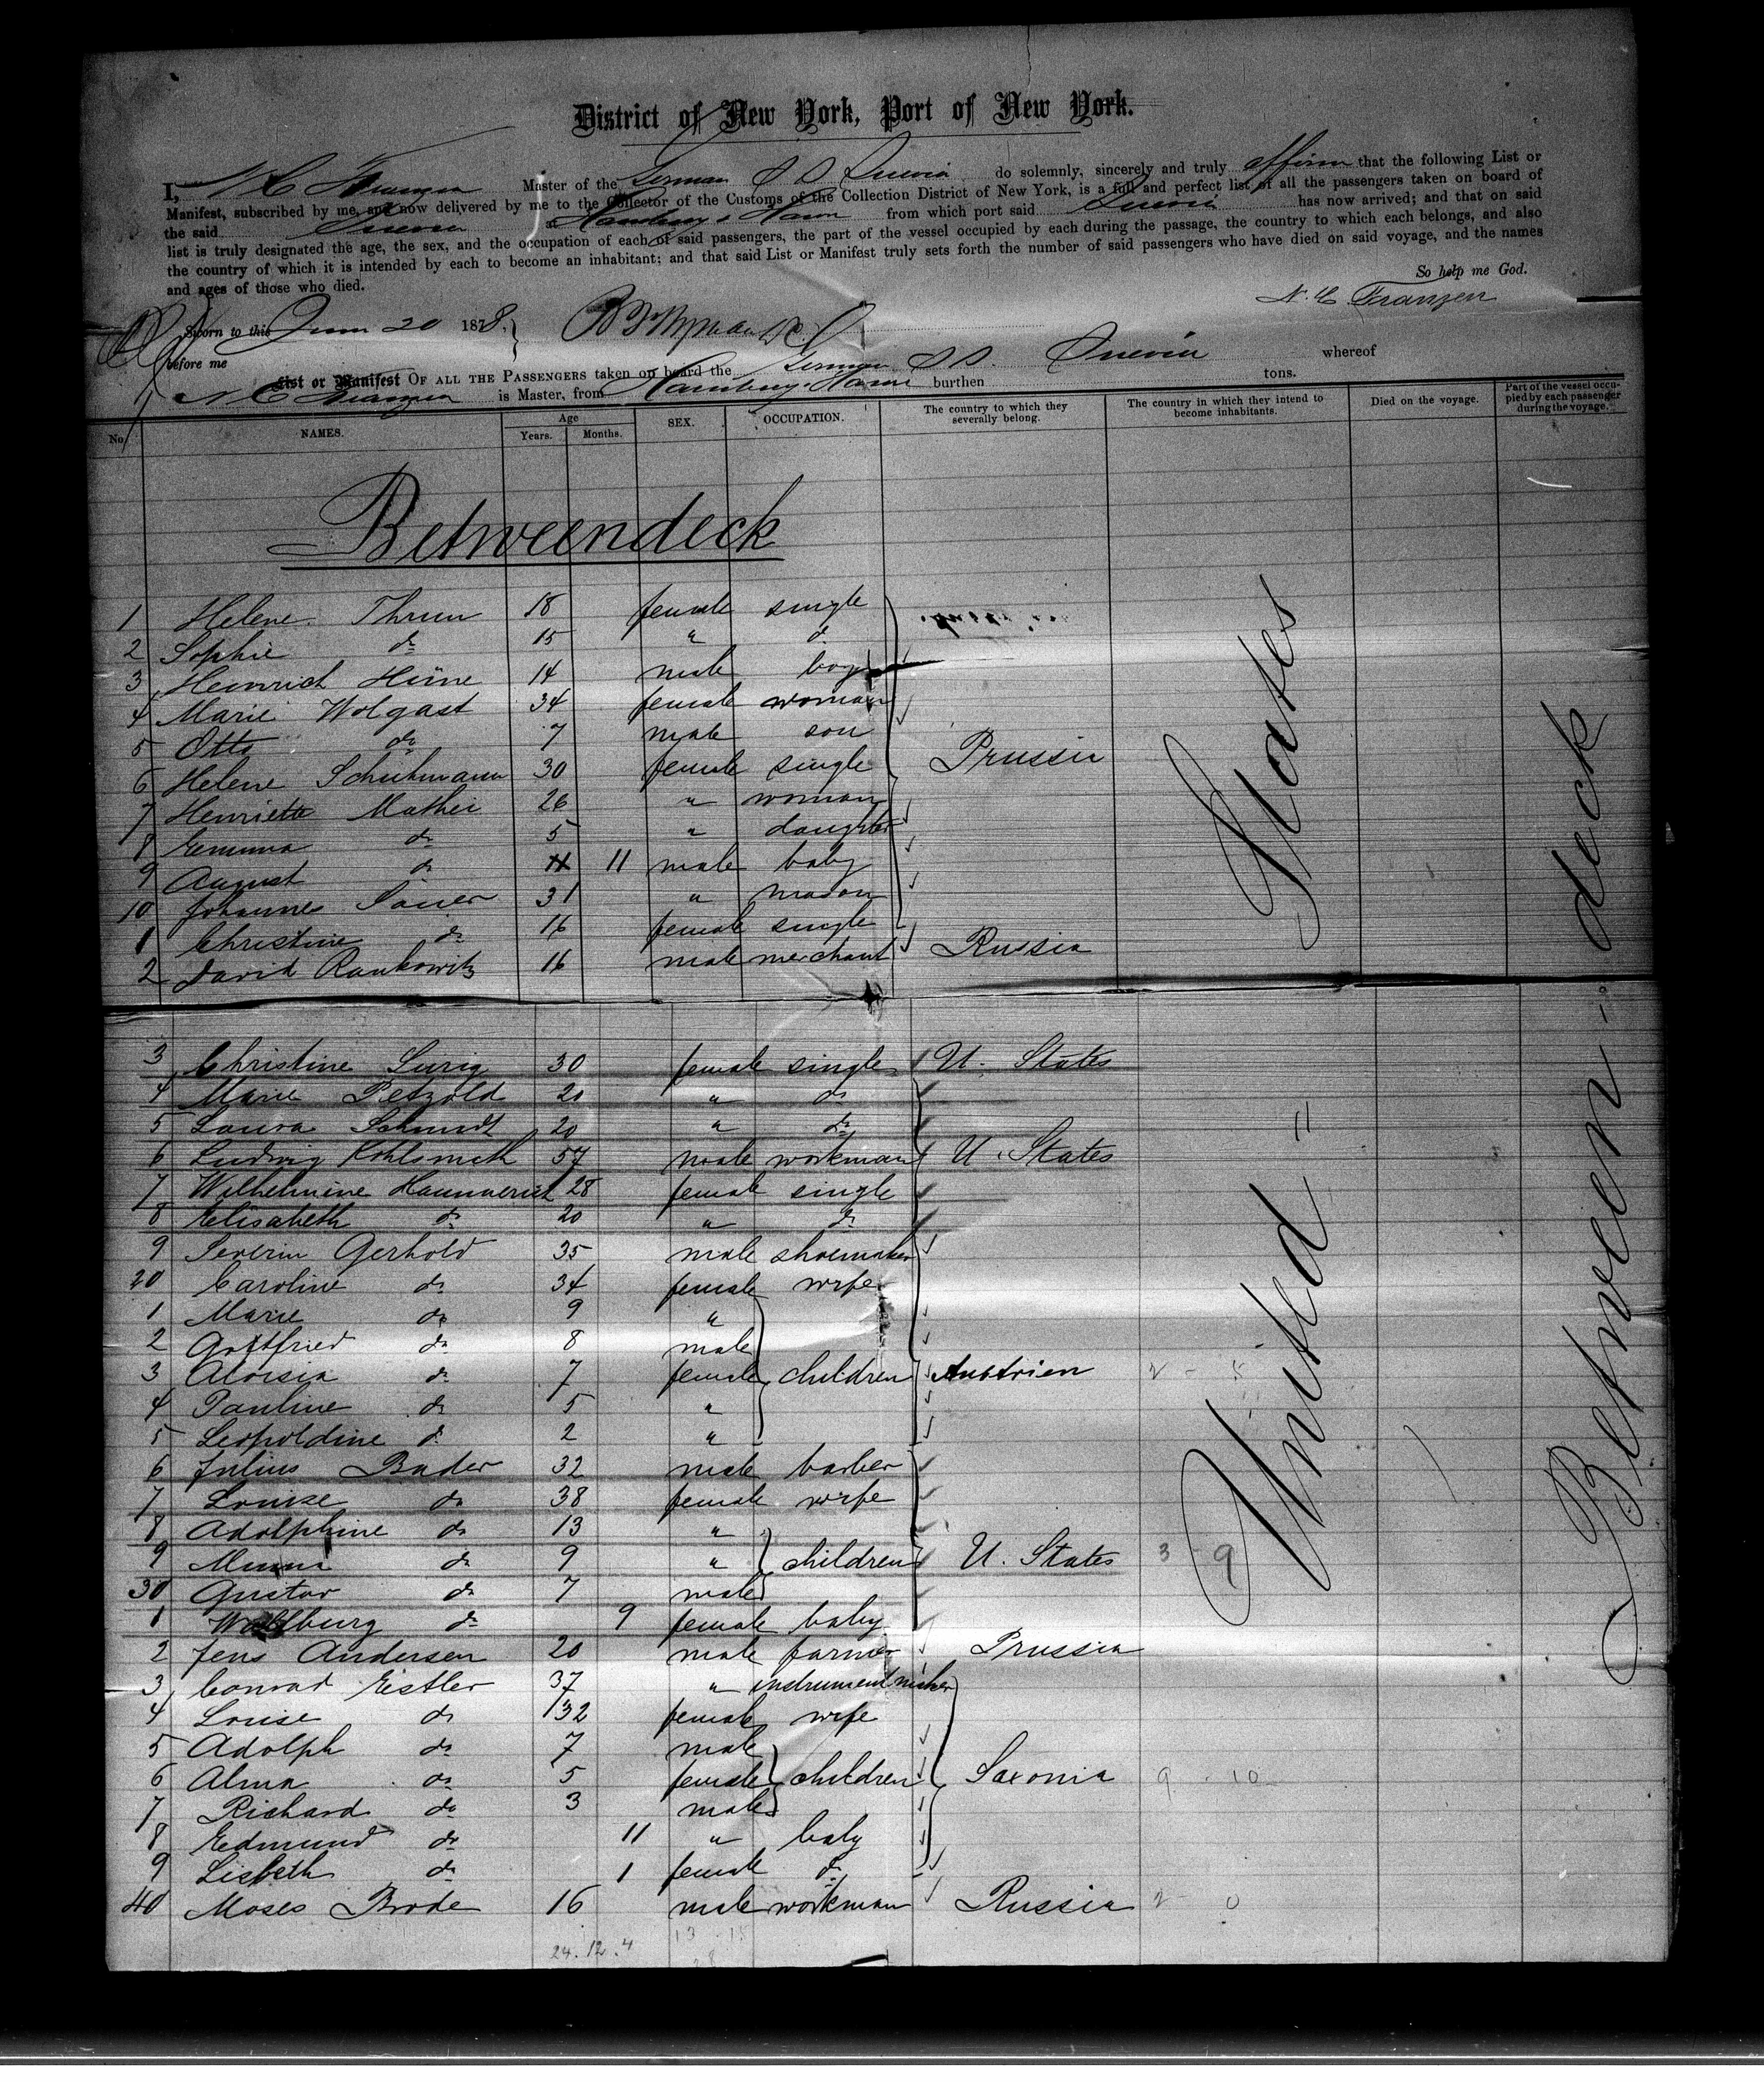 District of New York, Port of New York.
I, N C Franzen Master of the German S S Suevia do solemnly, sincerely and truly affirm that the following List or
Manifest, subscribed by me, and now delivered by me to the Collector of the Customs of the Collection District of New York, is a full and perfect list of all the passengers taken on board of
the said Suevia at Hamburg & Havre from which port said Suevia has now arrived; and that on said
list is truly designated the age, the sex, and the occupation of each of said passengers, the part of the vessel occupied by each during the passage, the country to which each belongs, and also
the country of which it is intended by each to become an inhabitant; and that said List or Manifest truly sets forth the number of said passengers who have died on said voyage, and the names
and ages of those who died.
So help me God.
N. C Franzen
Sworn to this June 20 1878,
before me
List or Manifest OF ALL THE PASSENGERS taken on board the German S S. Suevia whereof
N C Franzen is Master, from Hamburg, Havre burthen tons.
No. NAMES. Age Years. Months. SEX. OCCUPATION. The country to which they severally belong. The country in which they intend to become inhabitants. Died on the voyage. Part of the vessel occupied by each passenger during the voyage.
Betweendeck
1 Helene Thrun 18 female single
2 Sophie do 15 " do
3 Heinrich Hüne 14 male boy
4 Marie Wolgast 34 female woman
5 Otto do 7 male son
6 Helene Schuhmann 30 female single Prussia
7 Henriette Mathei 26 " woman
8 Emma do 5 " daughter
9 August do 11 male baby
10 Johannes Sauer 31 " mason
1 Christine do 16 female single
2 David Rankowitz 16 male merchant Russia
3 Christine Lurig 30 female single U. States
4 Marie Petzold 20 " do
5 Laura Schmidt 20 " do
6 Ludwig Kohlsmeth 57 male workman U. States
7 Wilhelmine Hammerich 28 female single
8 Elisabeth do 20 " do
9 Severin Gerhold 35 male shoemaker
20 Caroline do 34 female wife
1 Marie do 9 "
2 Gottfried do 8 male
3 Aloisia do 7 female children Austrien
4 Pauline do 5 "
5 Leopoldine do 2 "
6 Julius Bader 32 male barber
7 Louise do 38 female wife
8 Adolphine do 13 "
9 Minna do 9 " children U. States 3 9
30 Gustav do 7 male
1 Wallburg do 9 female baby
2 Jens Andersen 20 male farmer Prussia
3 Conrad Eistler 37 " instrumentmaker
4 Louise do 32 female wife
5 Adolph do 7 male
6 Alma do 5 female children Saxonia 9 . 10
7 Richard do 3 male
8 Edmund do 11 " baby
9 Lisbeth do 1 female do
40 Moses Brode 16 male workman Russia 2 0
24. 12. 4
United = States
Between - deck